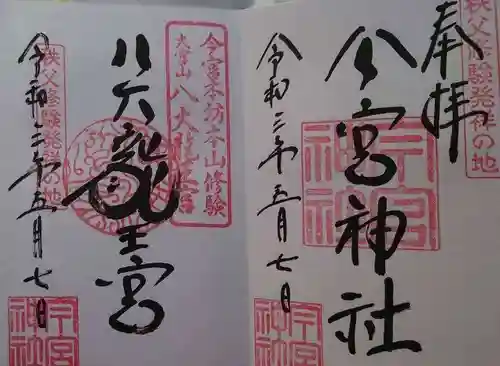 奉拝
秩父修験発祥の地
今宮神社
今宮神社
令和三年五月七日
今宮神社
今宮本坊本山修験
大宮山 八大龍王宮
八大龍王宮
秩父修験発祥の地
令和三年五月七日
今宮神社